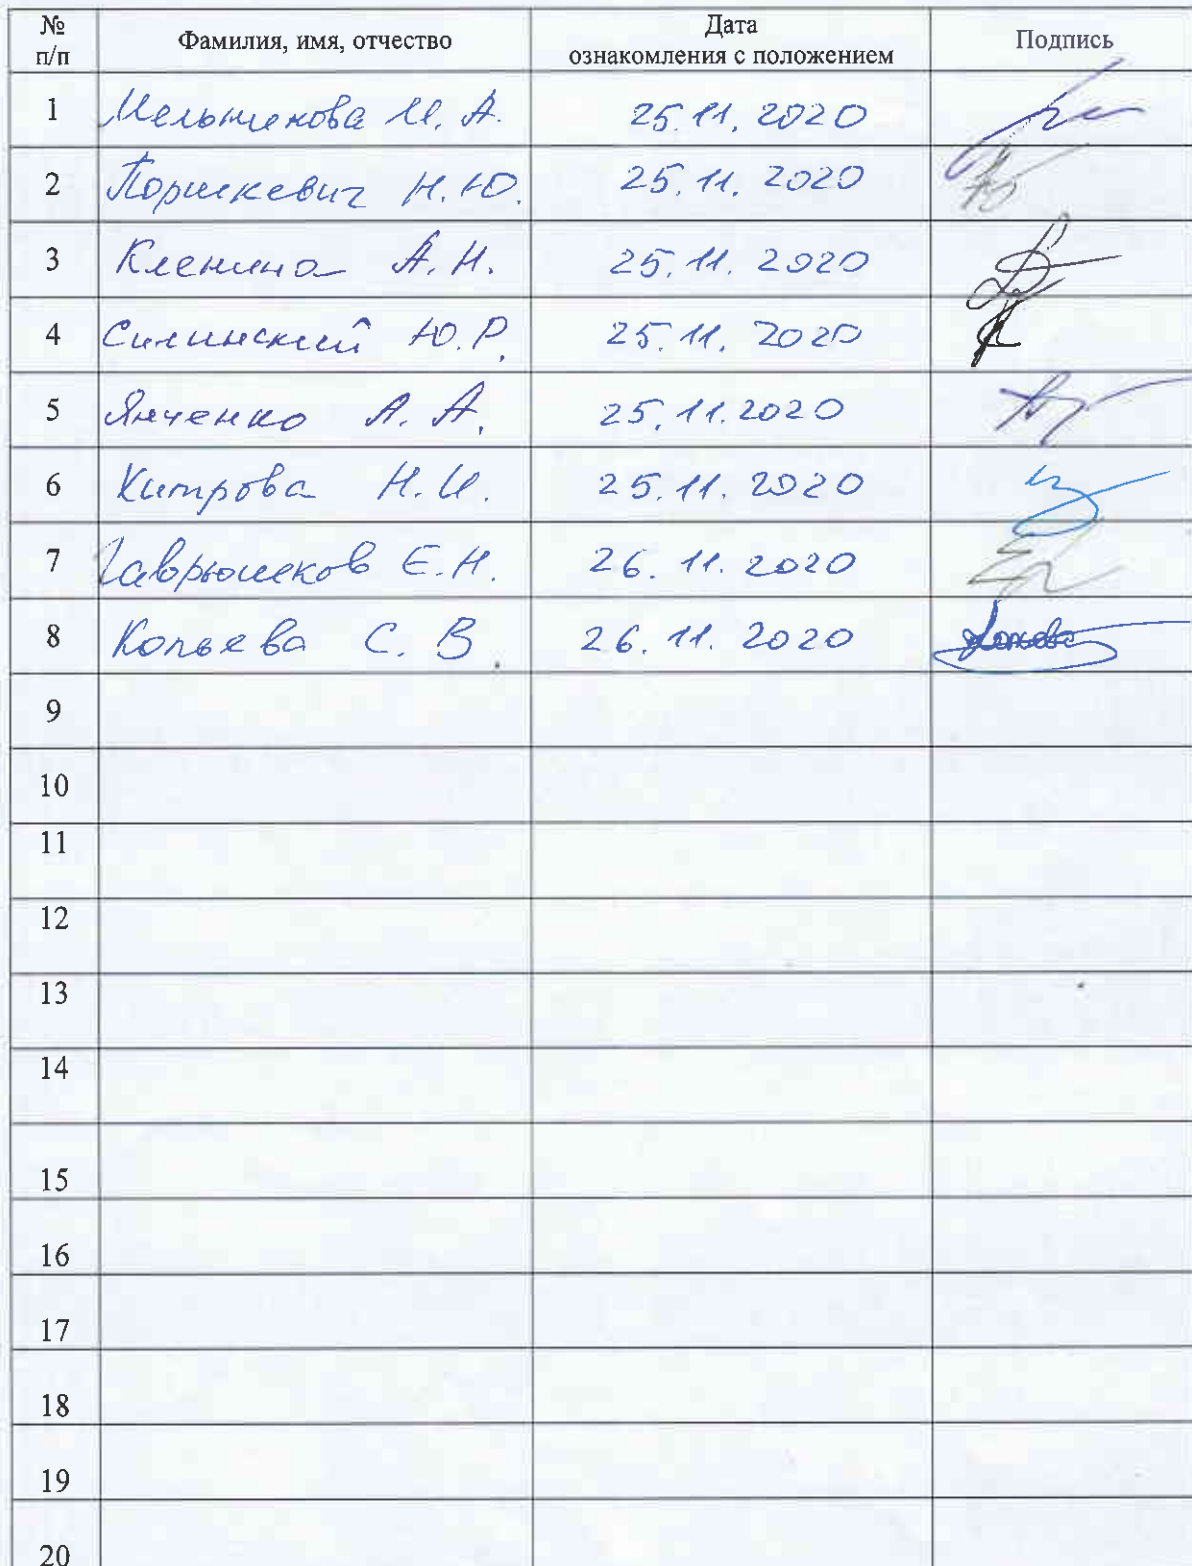 № п/п Фамилия, имя, отчество Дата ознакомления с положением Подпись
1 Мельникова И. А. 25.11.2020
2 Поршкевич Н.Ю. 25.11.2020
3 Кленина А.Н. 25.11.2020
4 Силинский Ю.Р. 25.11.2020
5 Янченко А.А. 25.11.2020
6 Хитрова Н.И. 25.11.2020
7 Гаврюшеков Е.Н. 26.11.2020
8 Копьева С.В. 26.11.2020
9
10
11
12
13
14
15
16
17
18
19
20